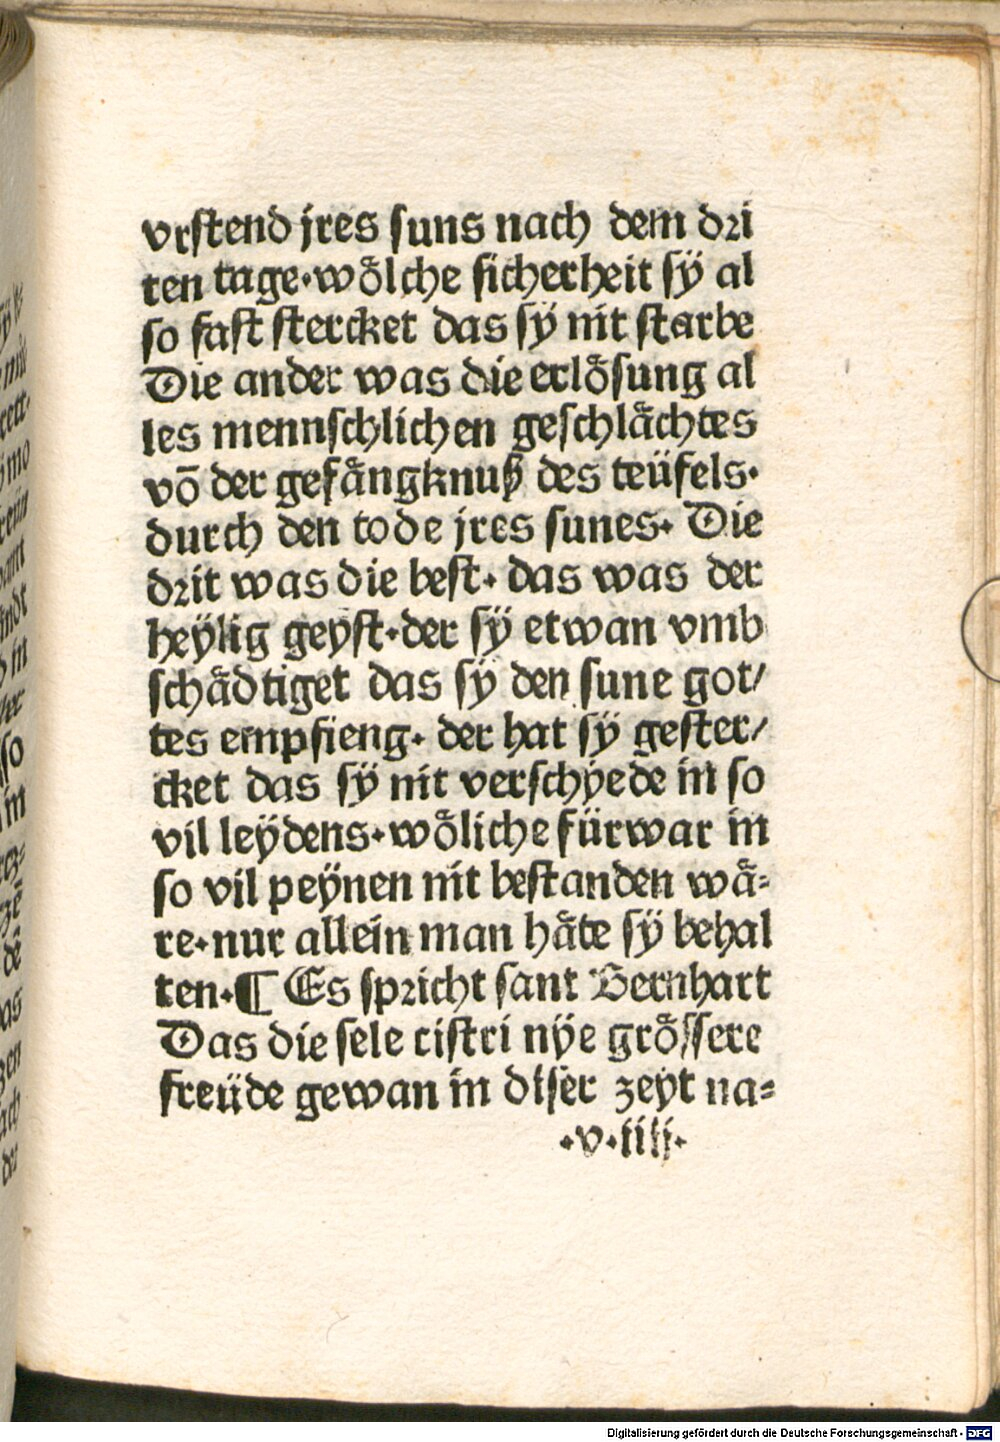 vrstend jres suns nach dem dri
ten tage·wölche sicherheit sÿ al
so fast stercket das sÿ nit starbe
Die ander was die erlösung al
les mennschlichen geschlächtes
võ der gefängknuß des teüfels·
durch den tode jres sunes· Die
drit was die best· das was der
heÿlig geyst·der sÿ etwan vmb
schädtiget das sÿ den sune got/
tes empfieng· der hat sÿ gester/
cket das sÿ nit verschÿede in so
vil leÿdens·wöliche fürwar in
so vil peÿnen nit bestanden wä=
re·nur allein man häte sÿ behal
ten·¶ Es spricht sant Bernhart
Das die sele cistri nÿe grössere
freüde gewan in diser zeyt na=
·v·iiij·
Digitalisierung gefördert durch die Deutsche Forschungsgemeinschaft - DFG